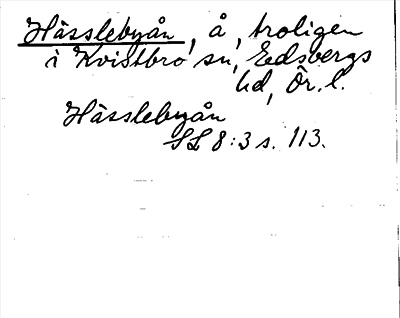 Hässlebyån, å, troligen
i Kvistbro sn, Edsbergs
hd, Ör. l.
Hässlebyån
SL 8:3 s. 113.